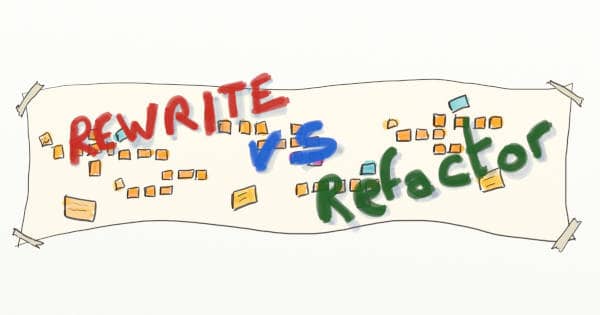 REWRITE
vs
Refactor